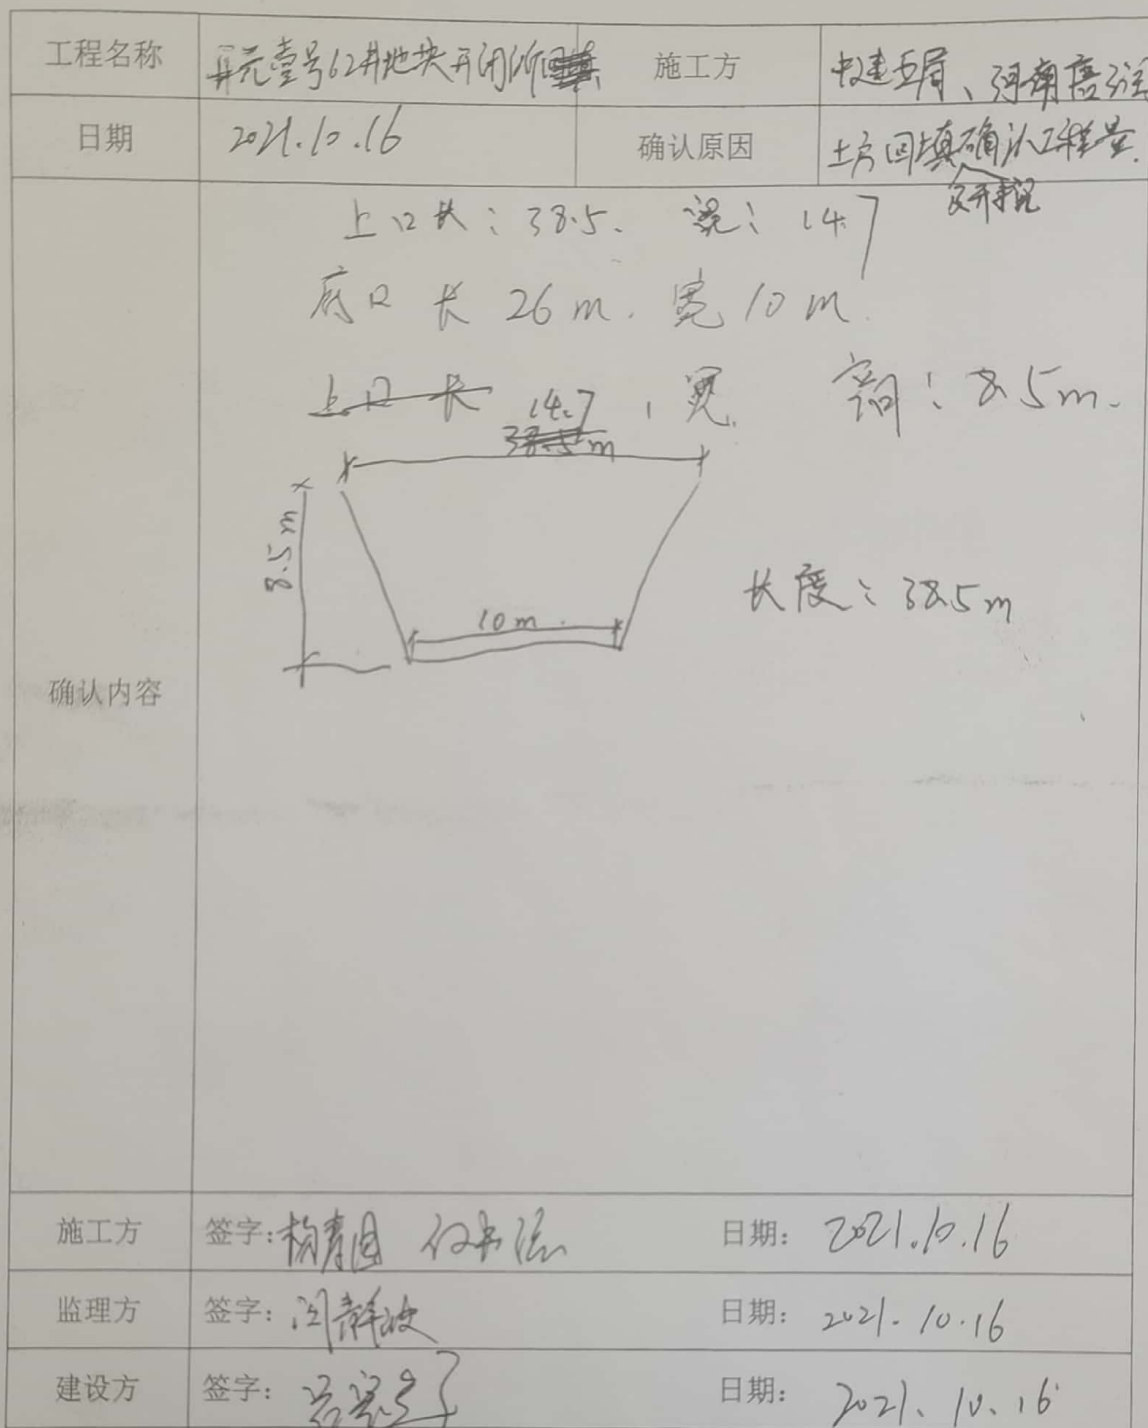 工程名称 开元壹号62井地块开闭所 施工方 中建五局、河南
日期 2021.10.16 确认原因 土方回填确认工程量.
及开挖
上口长：38.5. 宽：14.7
底口 长 26m. 宽10m.
上口 长 , 宽. 高：8.5m.
14.7
38.5m
8.5m
10m.
长度：38.5m
确认内容
施工方 签字: 日期: 2021.10.16
监理方 签字: 日期: 2021.10.16
建设方 签字: 日期: 2021.10.16